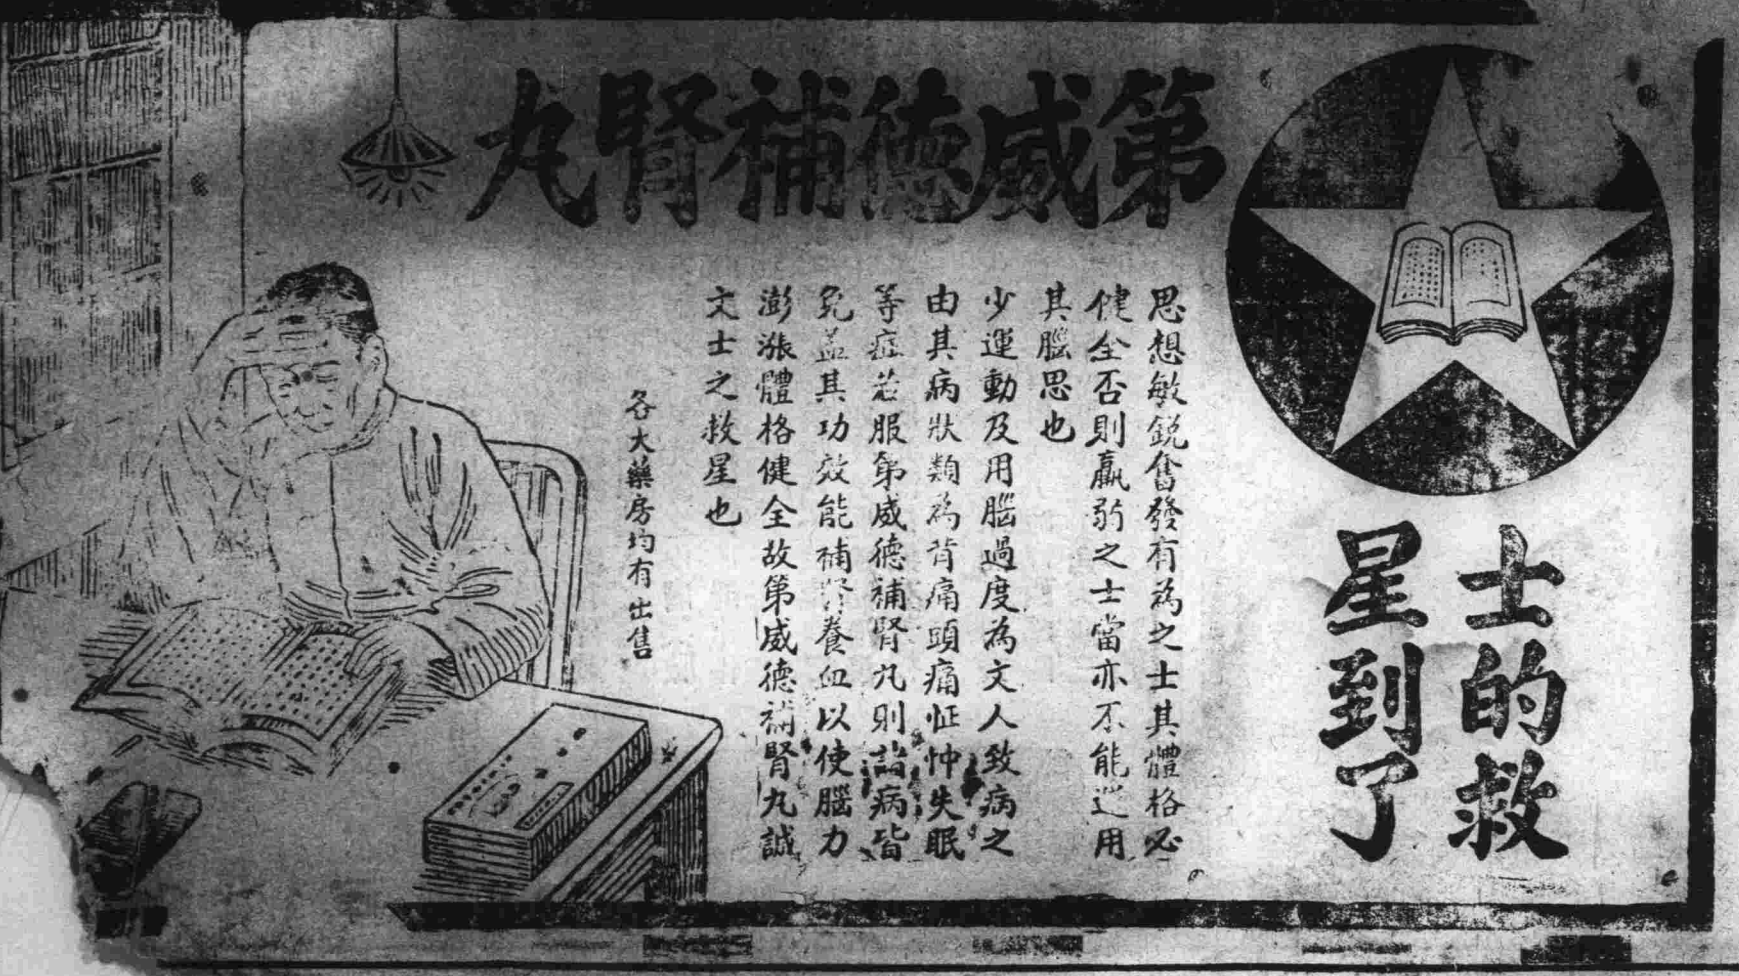 第威德補腎丸
士的救
星到了
思想敏銳奮發有為之士其體格必
健全否則羸弱之士當亦不能運用
其腦思也
少運動及用腦過度為文人致病之
由其病狀類為背痛頭痛怔忡失眠
等症若服第威德補腎丸則諸病皆
免蓋其功效能補腎養血以使腦力
澎漲體格健全故第威德補腎丸誠
文士之救星也
各大藥房均有出售